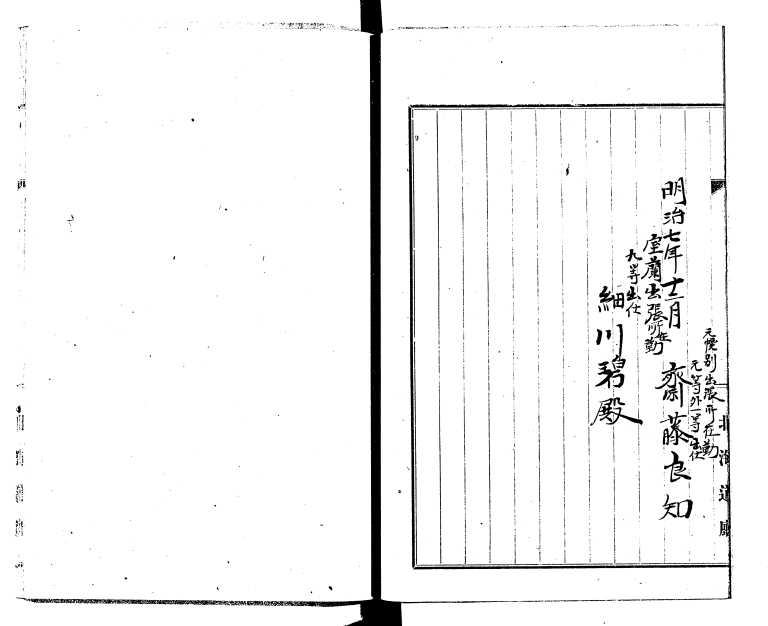 元幌別出張所在勤
元等外一等出仕
齋藤良知
明治七年十二月
室蘭出張所在勤
九等出仕
細川碧殿
北海道廳